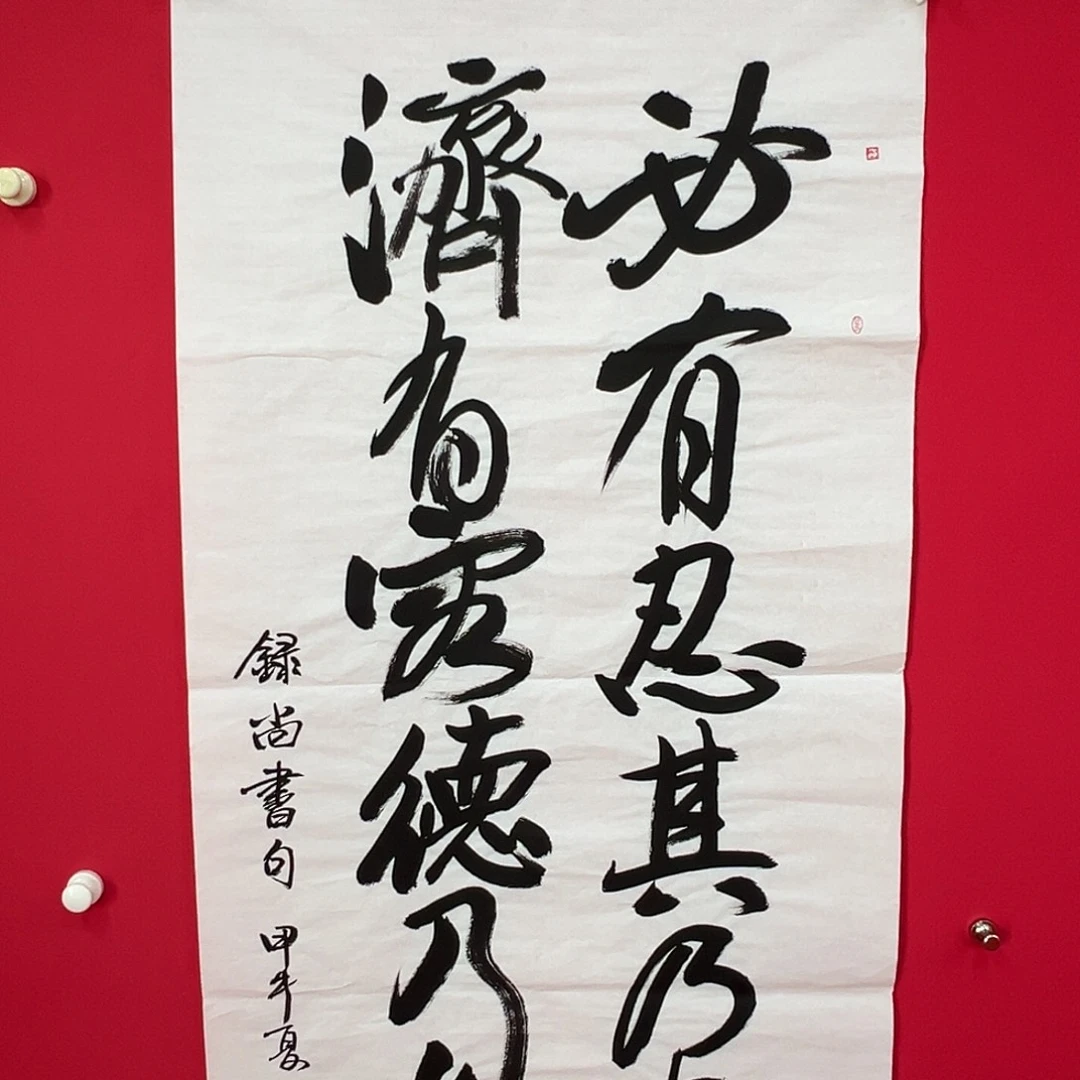 必有忍其乃
濟有容德乃
録尚書句 甲午夏